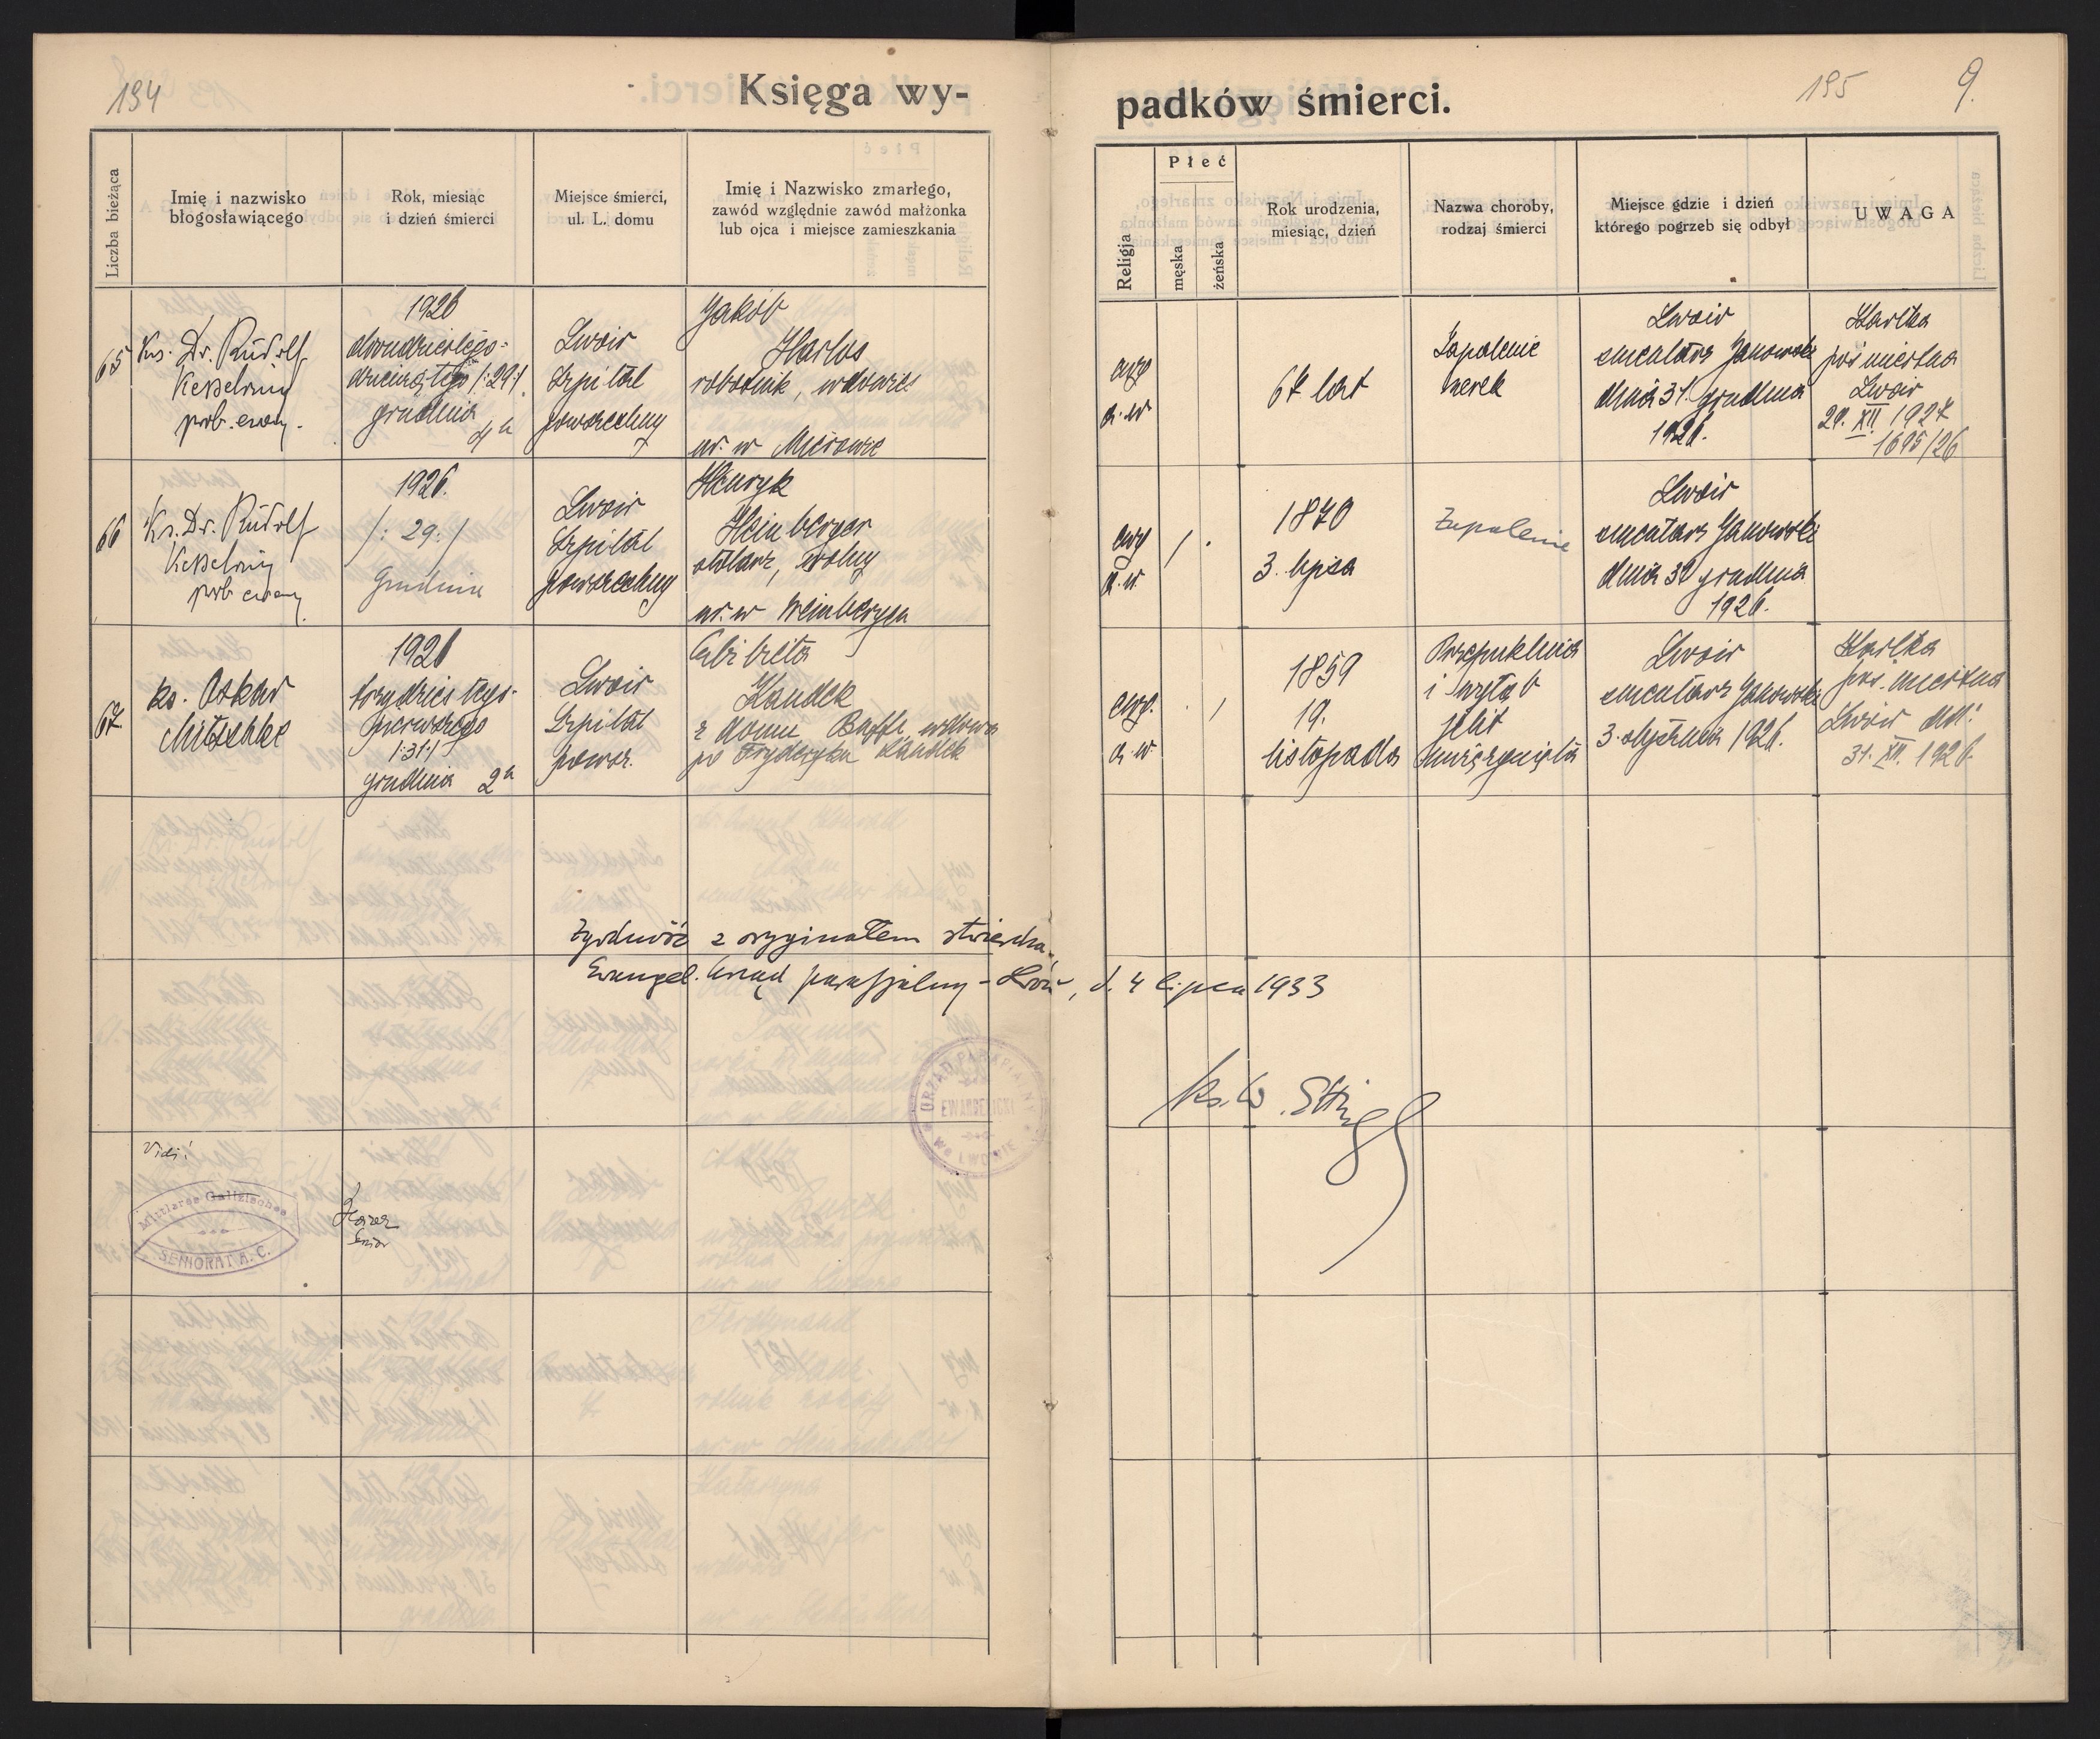 194
Księga wy-
padków śmierci.
195
9.
Liczba bieżąca
Imię i nazwisko
błogosławiącego
Rok, miesiąc
i dzień śmierci
Miejsce śmierci,
ul. L. domu
Imię i Nazwisko zmarłego,
zawód względnie zawód małżonka
lub ojca i miejsce zamieszkania
Religja
Płeć
męska
żeńska
Rok urodzenia,
miesiąc, dzień
Nazwa choroby,
rodzaj śmierci
Miejsce gdzie i dzień
którego pogrzeb się odbył
UWAGA
65
Ks. Dr. Rudolf
Kesselring
prob. ewang.
1926
dwudziestego-
dziewiątego /:29:/
grudnia
4 h
Lwów
Szpital
powszechny
Jakób
Harlos
robotnik, wdowiec
ur. w Mierowie
ewg
a. w.
67 lat
Zapalenie
nerek
Lwów
cmentarz Janowski
dnia 31. grudnia
1926.
Kartka
pośmiertna
Lwów
29. XII. 1927
1695/26
66
Ks. Dr. Rudolf
Kesselring
prob. ewang.
1926.
/: 29. /
Grudnia
Lwów
Szpital
powszechny
Henryk
Heinberger
stolarz, wolny
ur. w Weinbergen
ewg
a. w.
/ .
1870
3. lipca
Zapalenie
Lwów
cmentarz Janowski
dnia 31 grudnia
1926.
67
ks. Oskar
Mitschke
1926
trzydziestego-
pierwszego
/:31:/
grudnia 2 h
Lwów
Szpital
powsz.
Elżbieta
Kandek
z domu wdowa
po Fryderyku Kandek
ewg.
a. w.
. /
1859
19.
listopada
Przepuklina
i
jelit
Lwów
cmentarz Janowski
3. stycznia 1926.
Kartka
poś. miertna
Lwów dn:
31. XII. 1926.
Zgodność z oryginałem stwierdza
Ewangel. Urząd parafjalny - Lwów, d. 4 lipca 1933
URZĄD PARAFIALNY
EWANGELICKI
We LWOWIE
Ks. W.
Vidi!
Mittleres Galizisches
SENIORAT A. C.
Senior